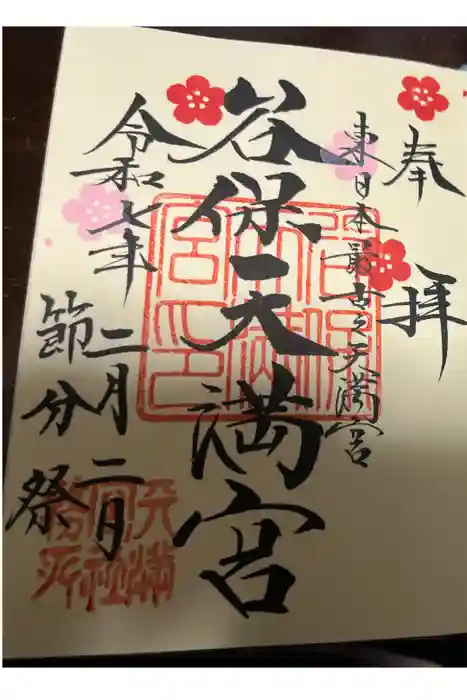 奉拝
東日本最古之天満宮
谷保天満宮
令和七年
二月二日
節分祭
谷保
天満
宮印
天満
宮社
務所